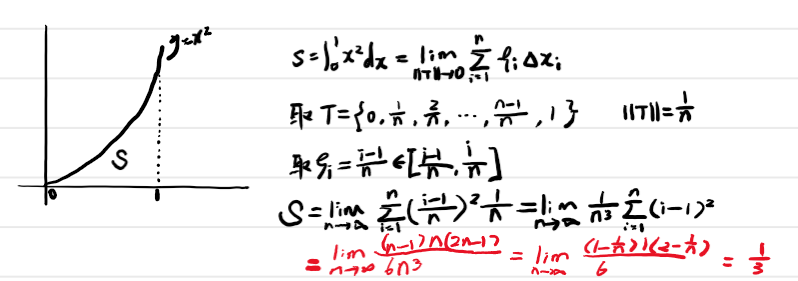 y=x²
S
0
1
S=∫₀¹x²dx=lim_{||T||→0} ∑_{i=1}^{n} ξᵢ Δxᵢ
取 T={0, 1/n, 2/n, ⋯, (n-1)/n, 1} ||T||=1/n
取 ξᵢ=(i-1)/n ∈[(i-1)/n, i/n]
S=lim_{n→∞} ∑_{i=1}^{n} ((i-1)/n)² 1/n=lim_{n→∞} 1/n³ ∑_{i=1}^{n} (i-1)²
= lim_{n→∞} (n-1)n(2n-1)/6n³ = lim_{n→∞} (1-1/n)1(2-1/n)/6 = 1/3